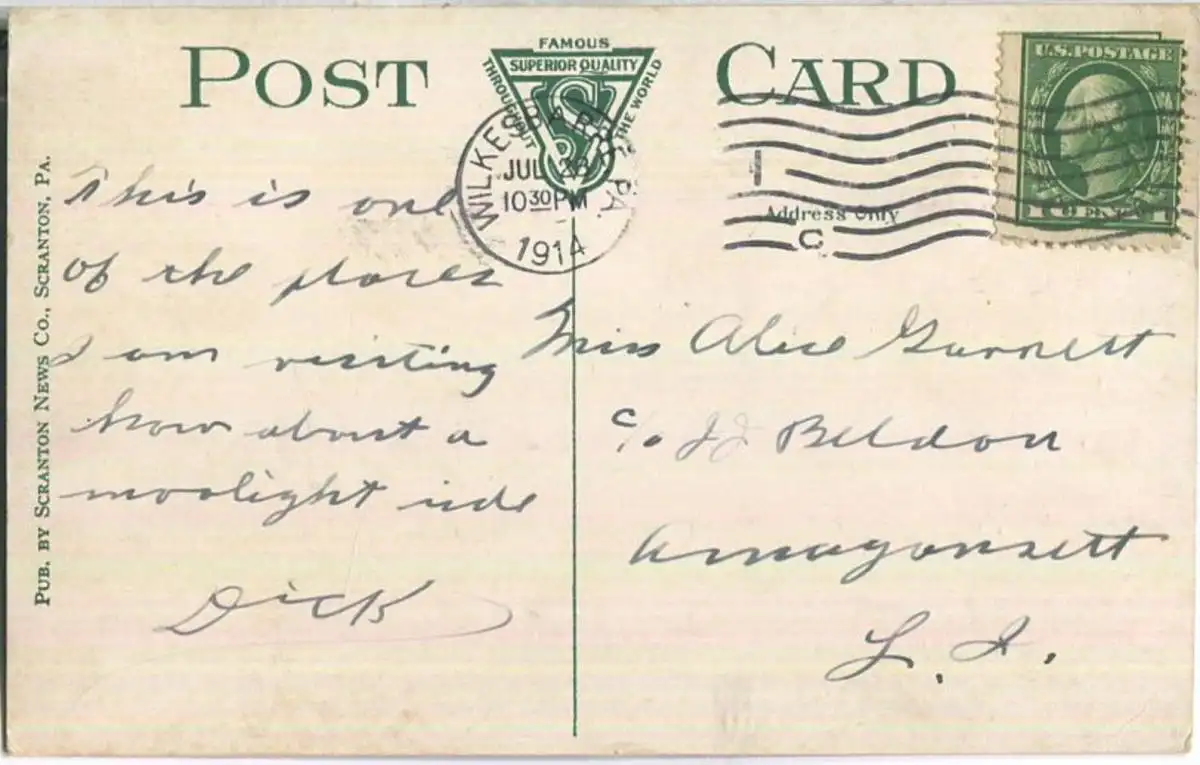 POST CARD
FAMOUS
SUPERIOR QUALITY
THROUGHOUT THE WORLD
WILKES BARRE PA.
JUL 28
10 30 PM
1914
U.S. POSTAGE
1 CENT 1
1
C
Address Only
PUB. BY SCRANTON NEWS CO., SCRANTON, PA.
This is one
of the places
I am visiting
how about a
moolight ride
Dick
Miss Alice Garnett
c/o JJ Beldon
Amagansett
L. I.